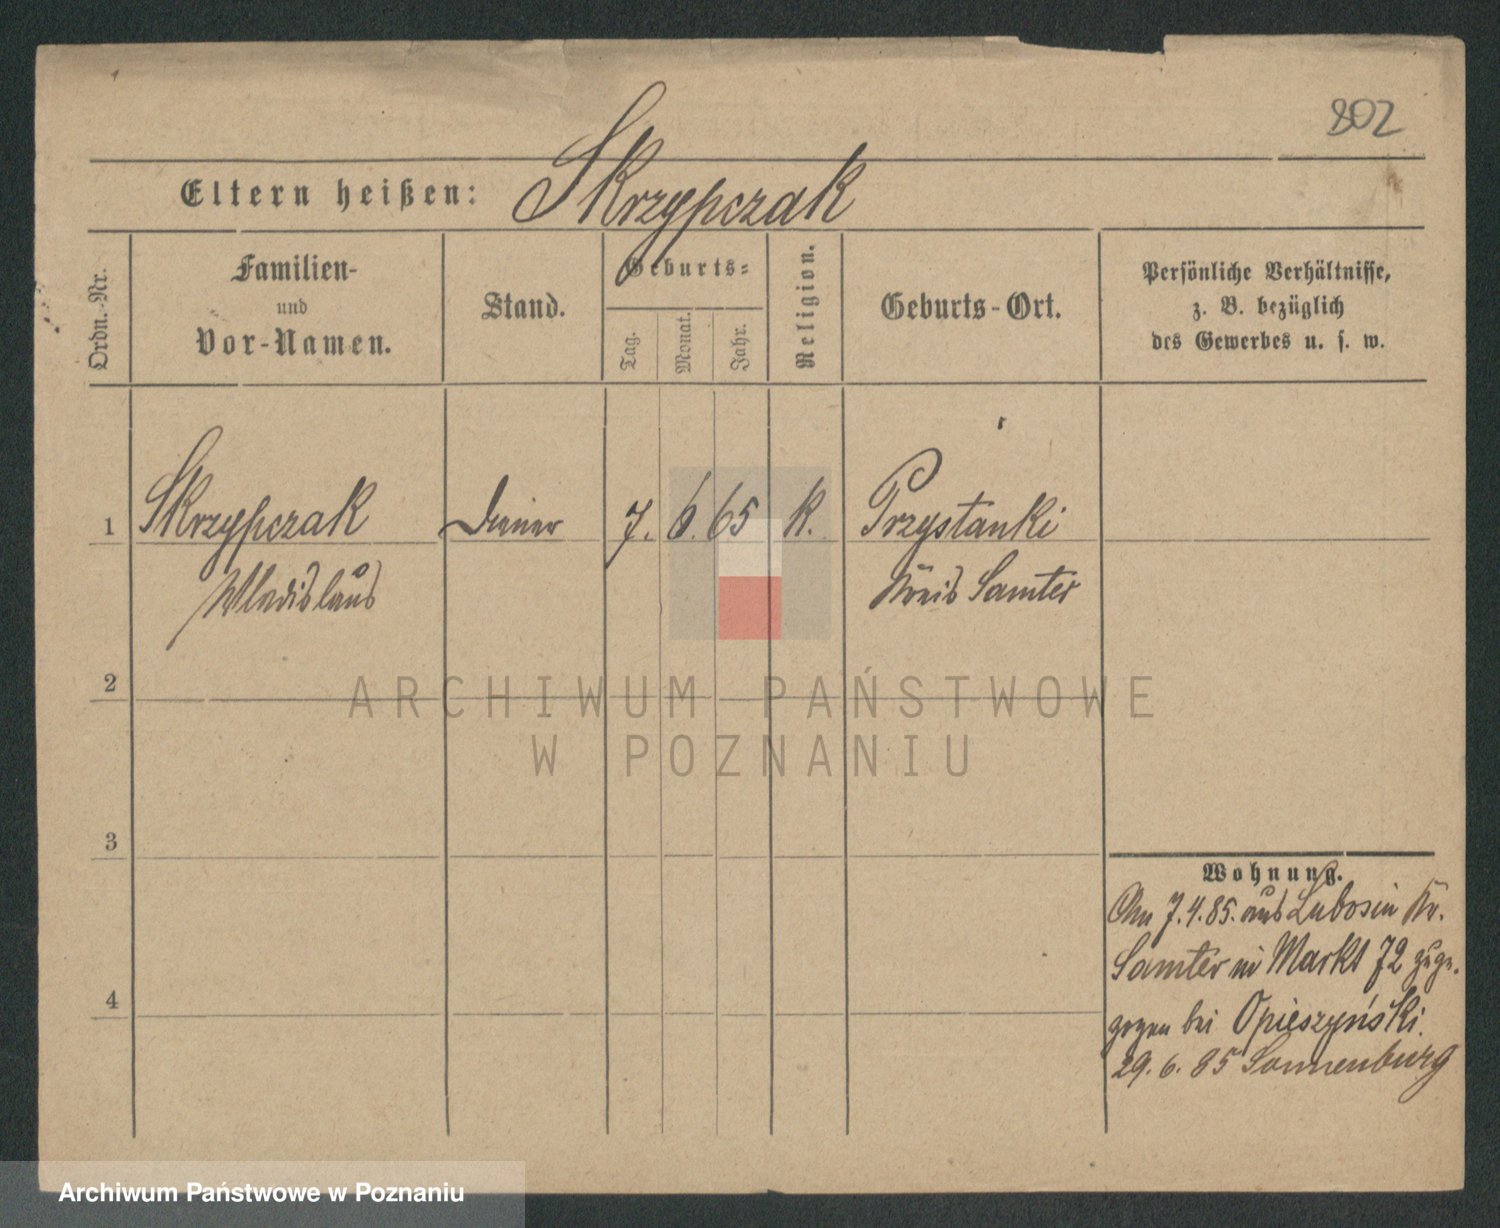 802
Eltern heißen: Skrzypczak
Ordn.-Nr.
Familien-
und
Vor-Namen.
Stand.
Geburts-
Tag.
Monat.
Jahr.
Religion.
Geburts-Ort.
Persönliche Verhältnisse,
z. B. bezüglich
des Gewerbes u. s. w.
1 Skrzypczak Diener 7. 6. 65 k. Przystanki
Wladislaus Kreis Samter
2
3
4
Wohnung.
Am 7.4.85. aus Lubosin Kr.
Samter in Markt 72 zuge-
zogen bei Opieszyński.
29. 6. 85 Sonnenburg
ARCHIWUM PAŃSTWOWE
W POZNANIU
Archiwum Państwowe w Poznaniu